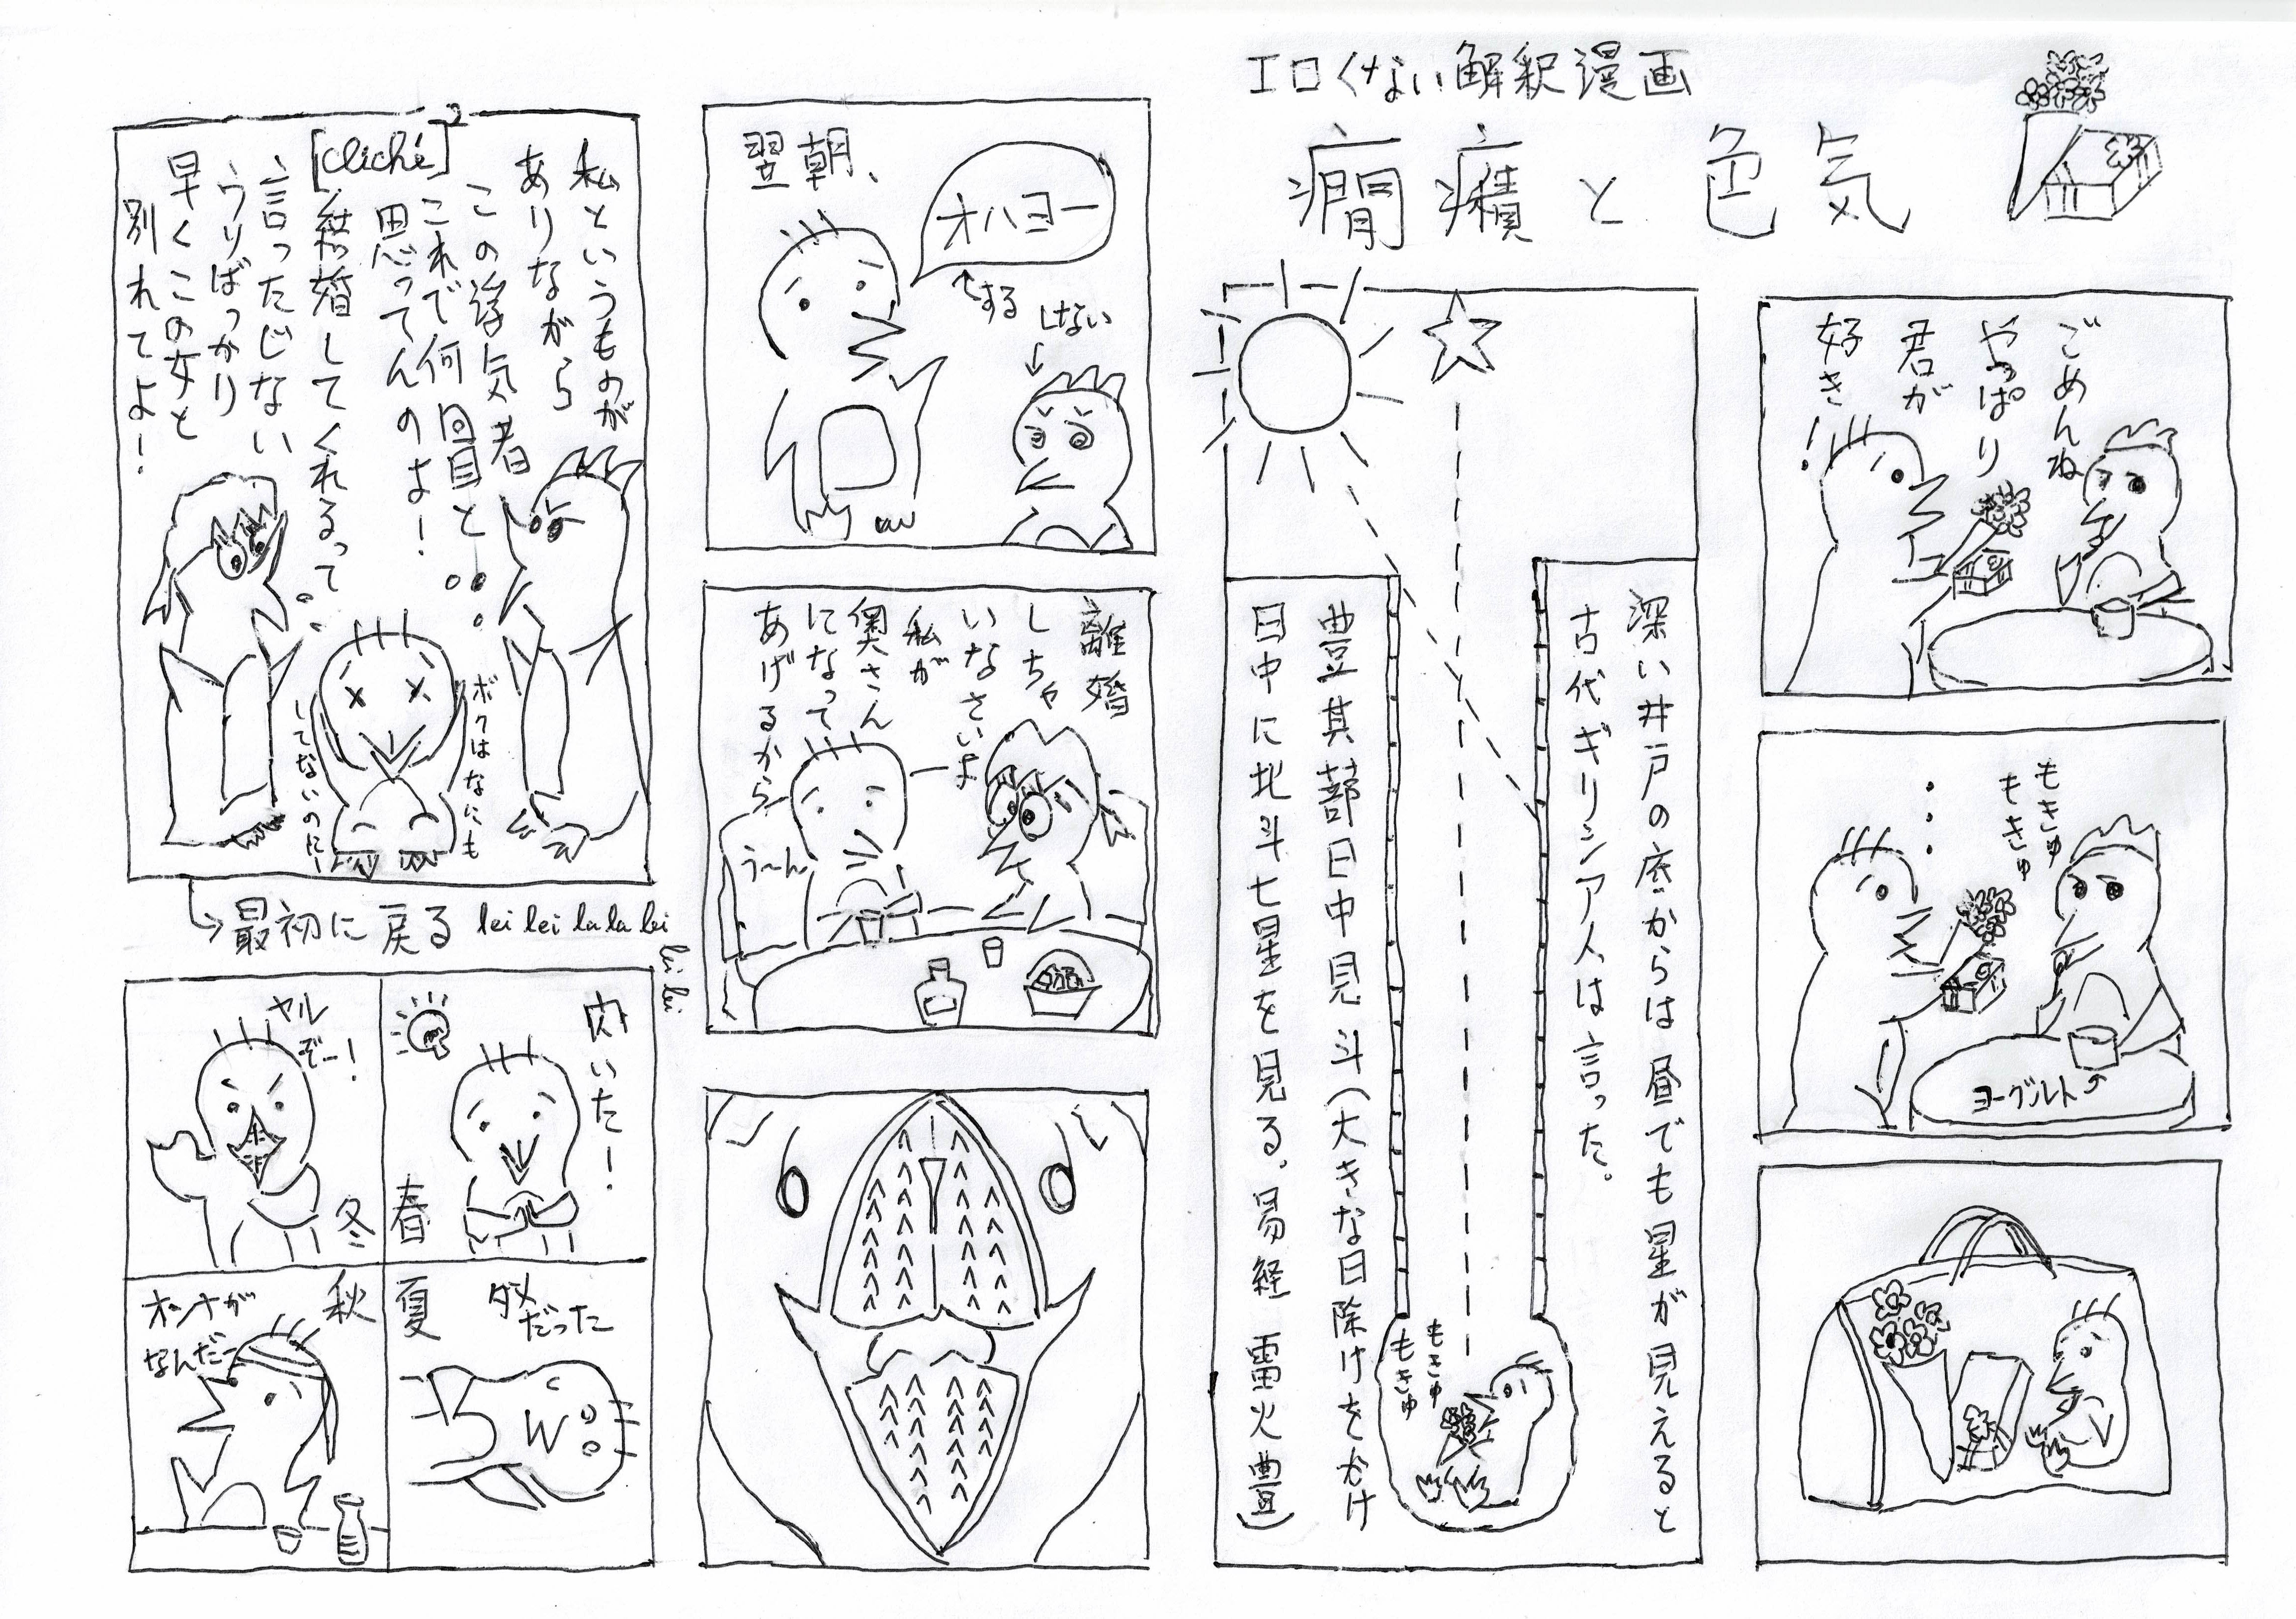 エロくない解釈漫画
癇癪と色気
ごめんね
やっぱり
君が
好き!
もきゅ
もきゅ
ヨーグルト
深い井戸の底からは昼でも星が見えると
古代ギリシア人は言った。
豊其蔀日中見斗(大きな日除けをかけ
日中に北斗七星を見る。易経 雷火豊)
もきゅ
もきゅ
翌朝、
オハヨー
する
しない
離婚
しちゃ
いなさいよ
私が
奥さん
になって
あげるから
う〜ん
私というものが
ありながら
この浮気者
これで何回目と
思ってんのよ!
[cliché]
結婚してくれるって
言ったじない
うりばっかり
早くこの女と
別れてよ!
ボクはなにも
してないのにー
最初に戻る lei lei la la lei
lei lei
閃いた!
春
ダメ
だった
夏
秋
オンナが
なんだー
冬
ヤル
ぞー!